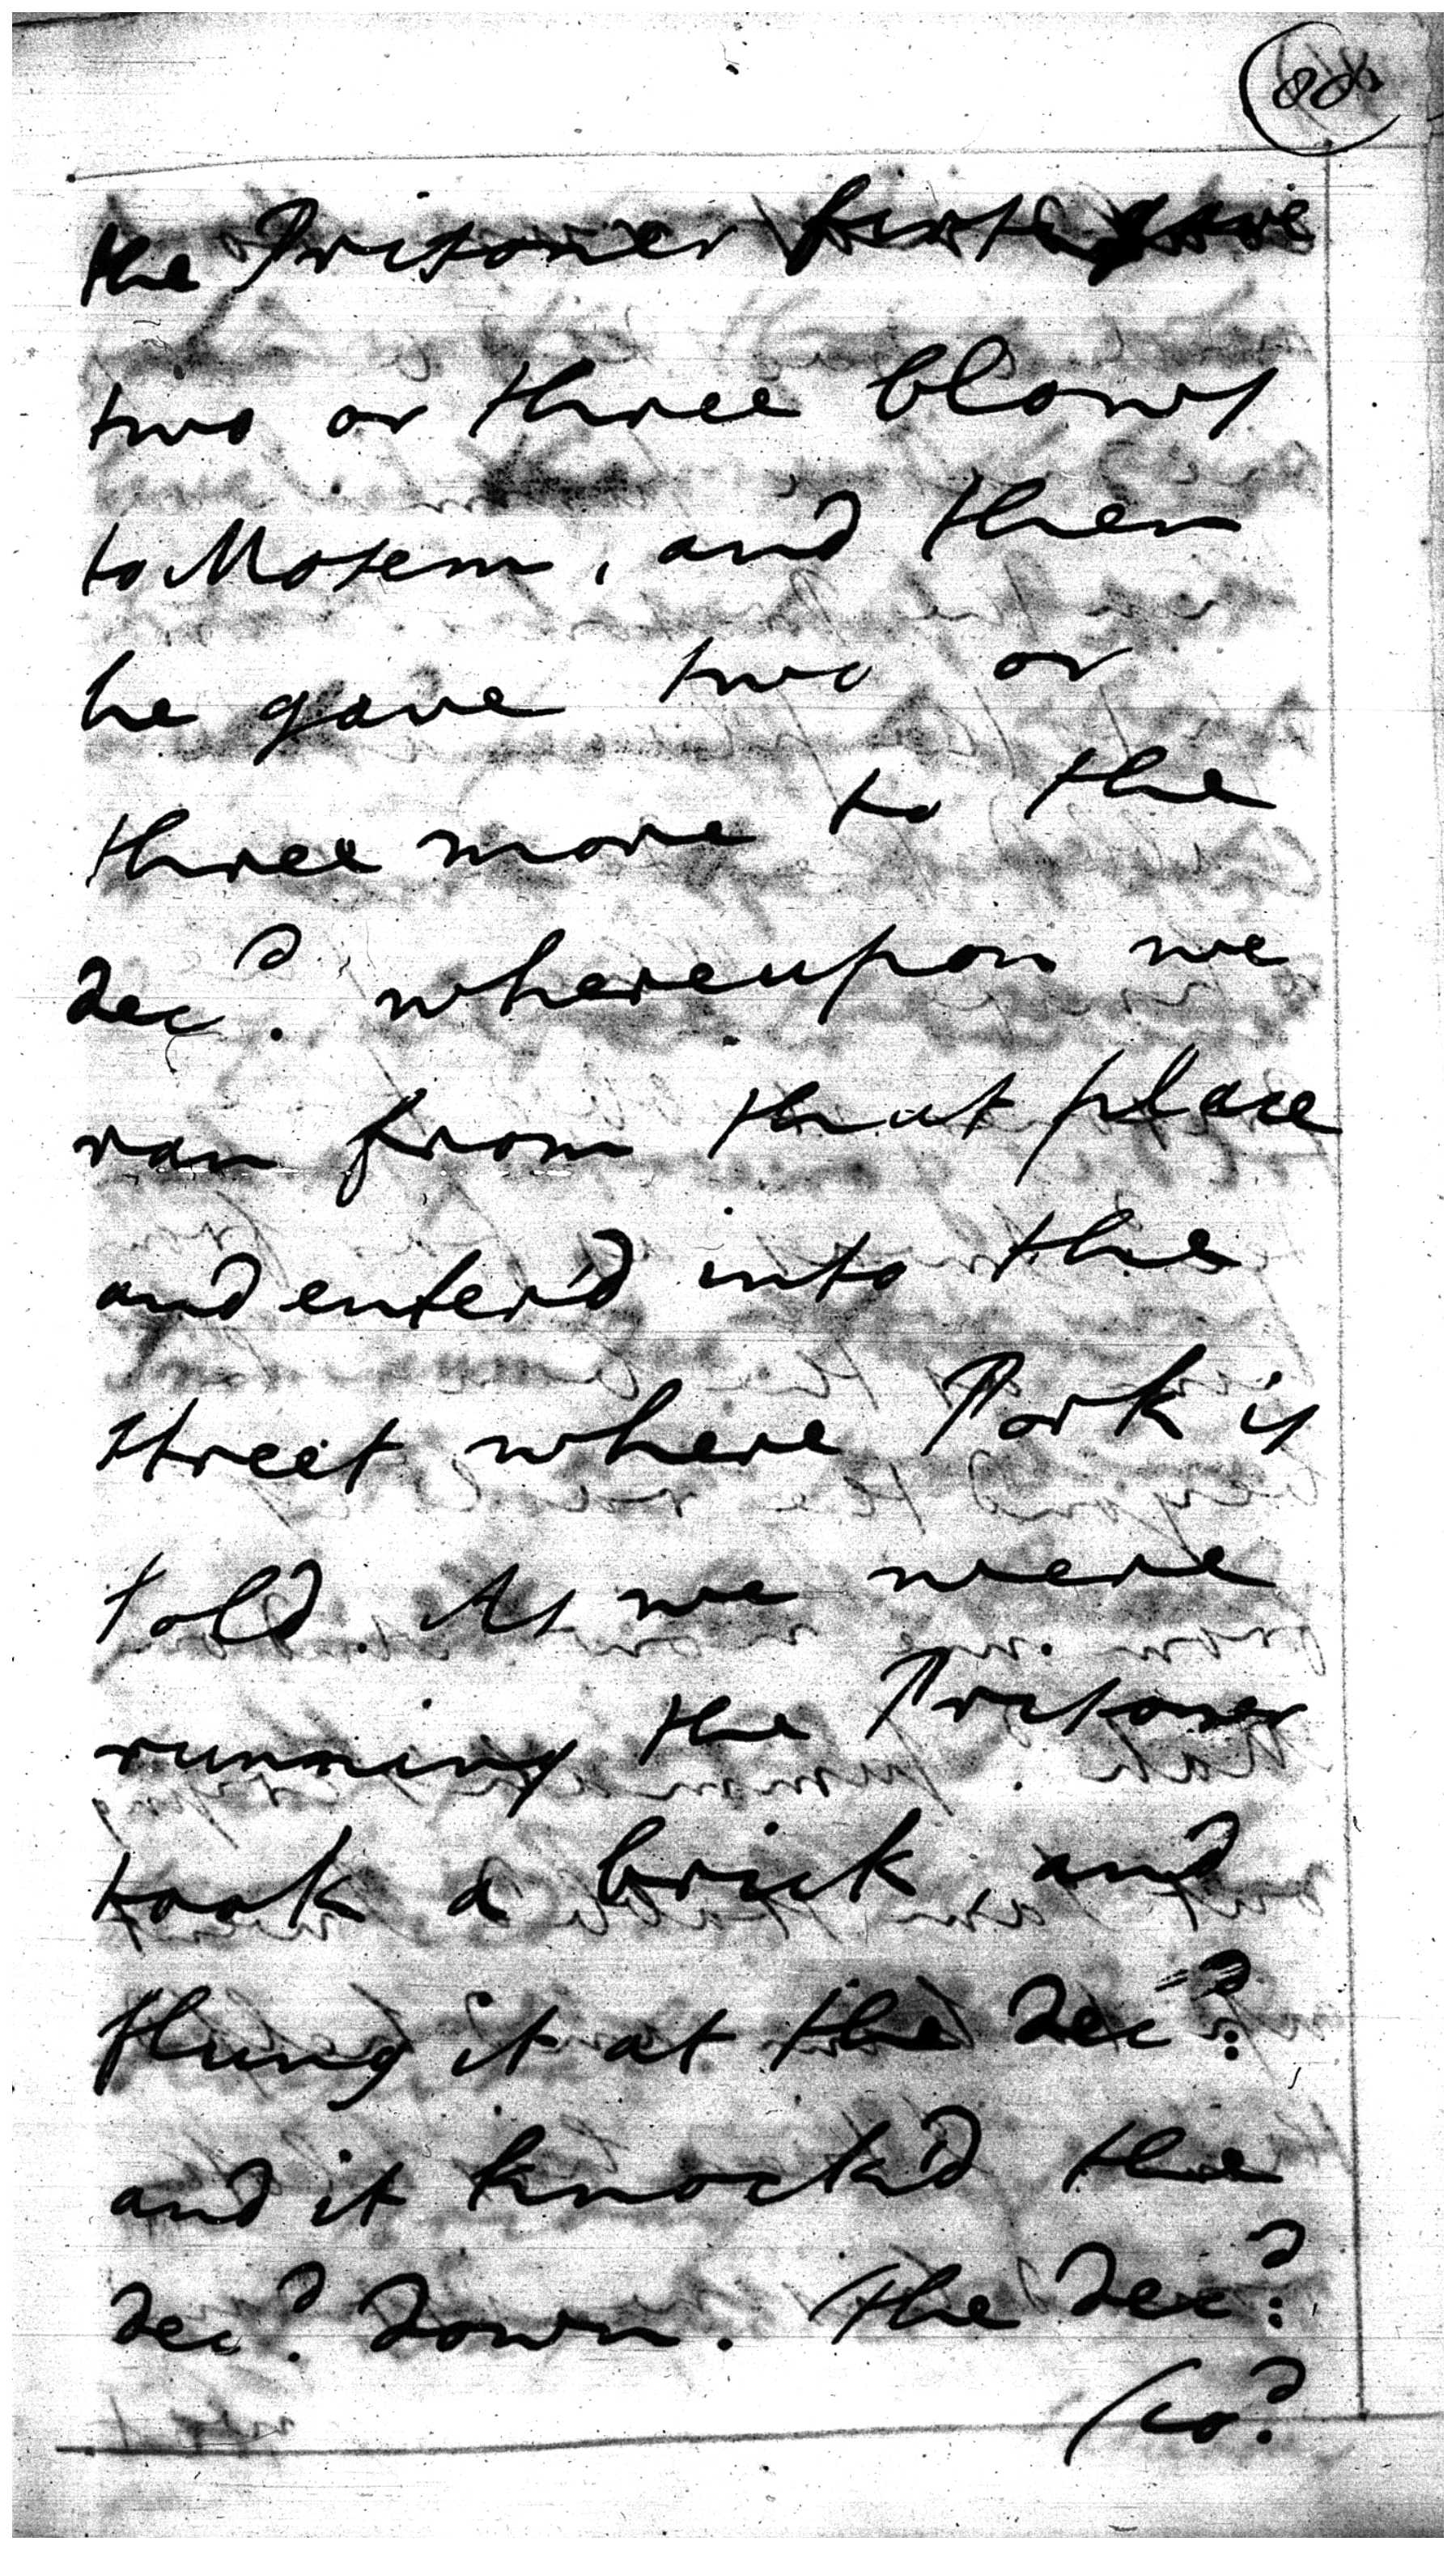 the Prisoner first gave
two or three blows
to Mosem, and then
he gave two or
three more to the
Dec.d whereupon we
ran from that place
and enter'd into the
street where Pork is
sold. As we were
running the Prisoner
took a brick, and
flung it at the Dec:d
and it knock'd the
Dec.d down. The Dec:d
(co.d